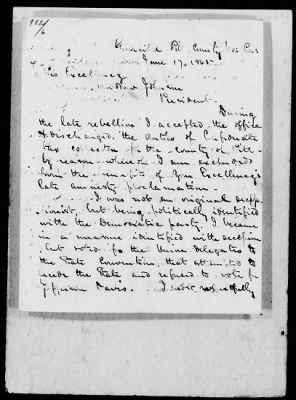 Greenville Pitt County No Ca
June 17, 1865
His Excellency
Andrew Johnson
President
During
the late rebellion I accepted the office
& discharged the duties of Confederate
tax collector for the county of Pitt
by reason whereof I am excluded
from the benefit of Your Excellency's
late amnesty proclamation.
I was not an original secess-
ionist, but being politically identified
with the Democratic party, I became
in a manner identified with secession
but voted for the Union delegates to
the State Convention, that attempted to
secede the State and refused to vote for
Jefferson Davis. I most respectfully